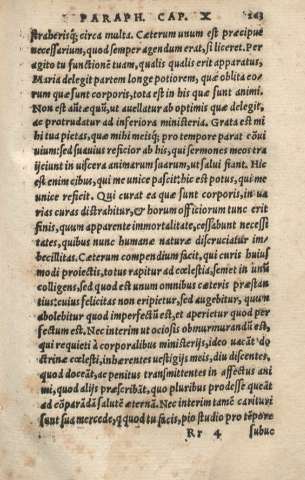 PARAPH. CAP. X 243
straherisq; circa multa. Cæterum unum est præcipue
necessarium, quod semper agendum erat, si liceret. Per
agito tu functionē tuam, qualis qualis erit apparatus,
Maria delegit partem longe potiorem, quæ oblita co⸗
rum quæ sunt corporis, tota est in his quæ sunt animi.
Non est aūt æquū, ut auellatur ab optimis quæ delegit,
ac protrudatur ad inferiora ministeria. Grata est mi
hi tua pietas, quæ mihi meisq; pro tempore parat cōui
uium: sed suauius reficior ab his, qui sermones meos tra
ijciunt in uiscera animarum suarum, ut salui fiant. Hic
est enim cibus, qui me unice pascit: hic est potus, qui me
unice reficit. Qui curat ea quæ sunt corporis, in ua
rias curas distrahitur, & horum officiorum tunc erit
finis, quum apparente immortalitate, cessabunt necessi
tates, quibus nunc humanæ naturæ discruciatur im⸗
becillitas. Cæterum compendium facit, qui curis huius
modi proiectis, totus rapitur ad cœlestia, semet in unū
colligens, sed quod est unum omnibus cæteris præstan
tius: cuius felicitas non eripietur, sed augebitur, quum
abolebitur quod imperfectū est, et aperietur quod per
fectum est. Nec interim ut ociosis obmurmurandū est,
qui requieti à corporalibus ministerijs, ideo uacāt do
ctrinæ cœlesti, inhærentes uestigijs meis, diu discentes,
quod doceāt, ac penitus transmittentes in affectus ani
mi, quod alijs præscribāt, quo pluribus prodesse queāt
ad cōparādā salutē æternā. Nec interim tamē carituri
sunt sua mercede, q quod tu facis, pio studio pro tēpore
Rr 4 subue